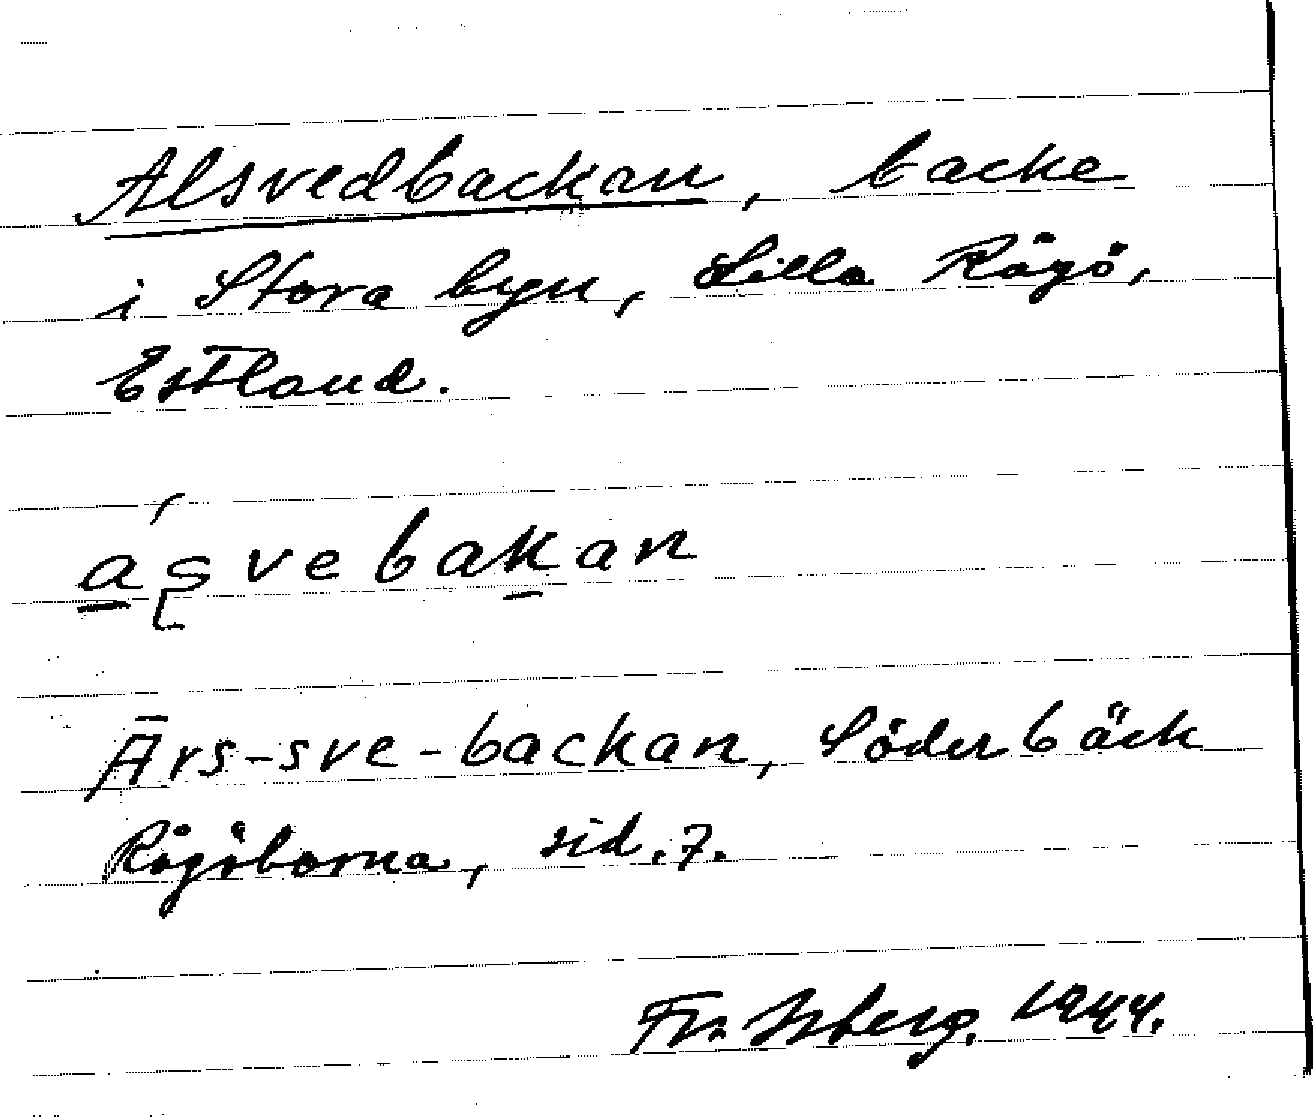 Alsvedbackan, backe
i Stora byn, Lilla Rågö,
Estland.
a̱ş́vebaḵan
Ārs-sve-backan, Söderbäck
Rågöborna, sid. 7.
Fr. Isberg. 1944.